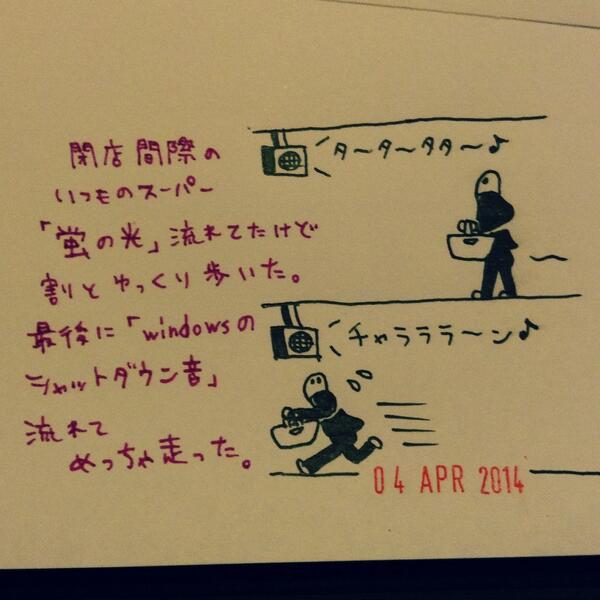 閉店間際の
いつものスーパー
「蛍の光」流れてたけど
割とゆっくり歩いた。
最後に「windowsの
シャットダウン音」
流れて
めっちゃ走った。
タータータター♪
チャラララ〜ン♪
04 APR 2014